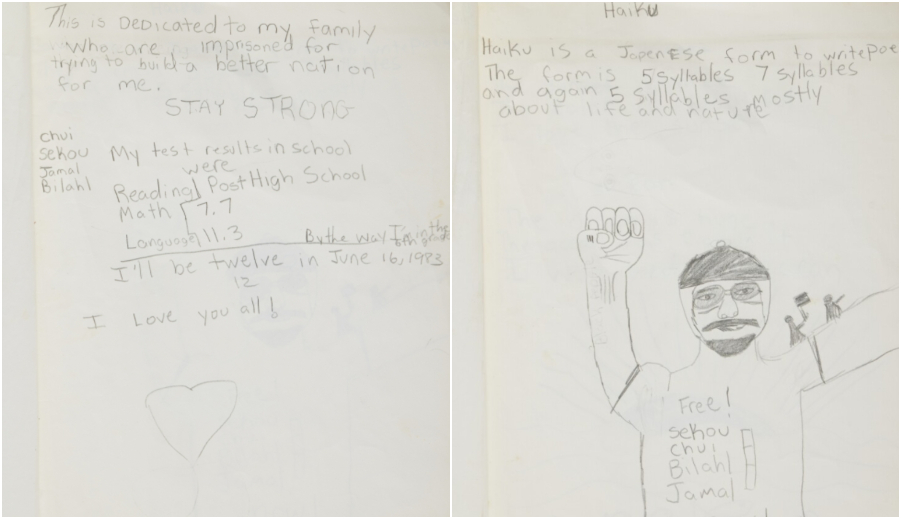 This is Dedicated to my Family
who are imprisoned for
trying to build a better nation
for me.
STAY STRONG
chui
sekou
Jamal
Bilahl
My test results in school
were
Reading Post High School
Math 7.7
Language 11.3
By the way I'm in the
I'll be twelve in June 16, 1983
12
I Love you all!
Haiku
Haiku is a Japenese form to write Poe
The form is 5 Syllables 7 syllables
and again 5 Syllables mostly
about life and nature
Free!
sekou
chui
Bilahl
Jamal